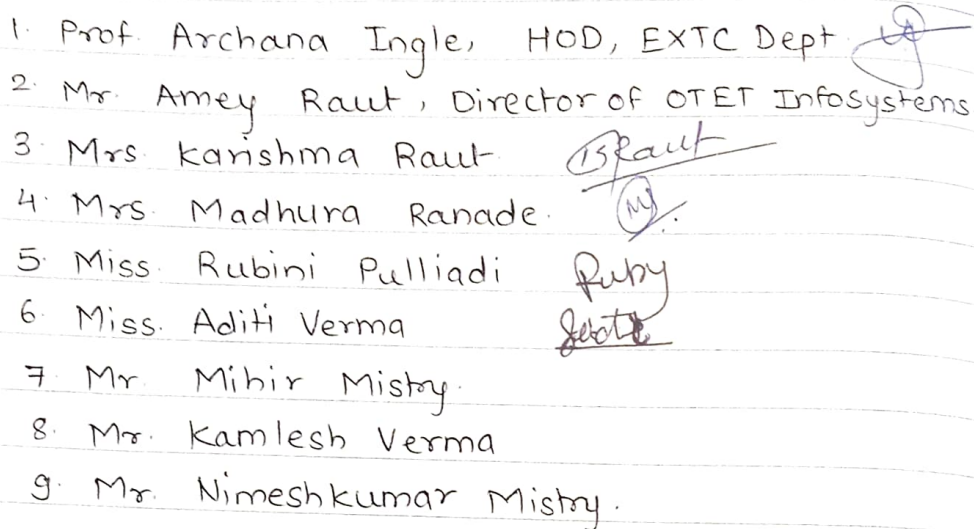 1. Prof. Archana Ingle, HOD, EXTC Dept.
2. Mr. Amey Raut, Director of OTET Infosystems
3. Mrs. Karishma Raut BRaut
4. Mrs. Madhura Ranade.
5. Miss. Rubini Pulliadi Ruby
6. Miss. Aditi Verma
7. Mr. Mihir Mistry.
8. Mr. Kamlesh Verma
9. Mr. Nimeshkumar Mistry.